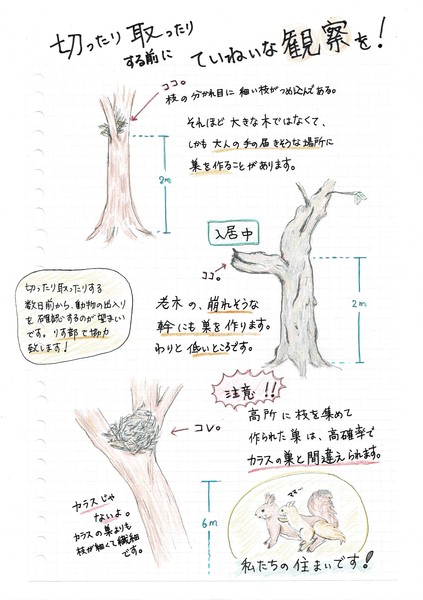 切ったり取ったり
する前に
ていねいな観察を!
ココ。
枝の分かれ目に細い枝がつめ込んである。
それほど大きな木ではなくて、
しかも大人の手の届きそうな場所に
巣を作ることがあります。
2m
入居中
ココ。
老木の、崩れそうな
幹にも巣を作ります。
わりと低いところです。
2m
切ったり取ったりする
数日前から、動物の出入り
を確認するのが望まい
です。りす部で協力
致します!
注意!!
高所に枝を集めて
作られた巣は、高確率で
カラスの巣と間違えられます。
コレ。
カラスじゃ
ないよ。
カラスの巣よりも
枝が細くて繊細
です。
6m
ママー
私たちの住まいです!